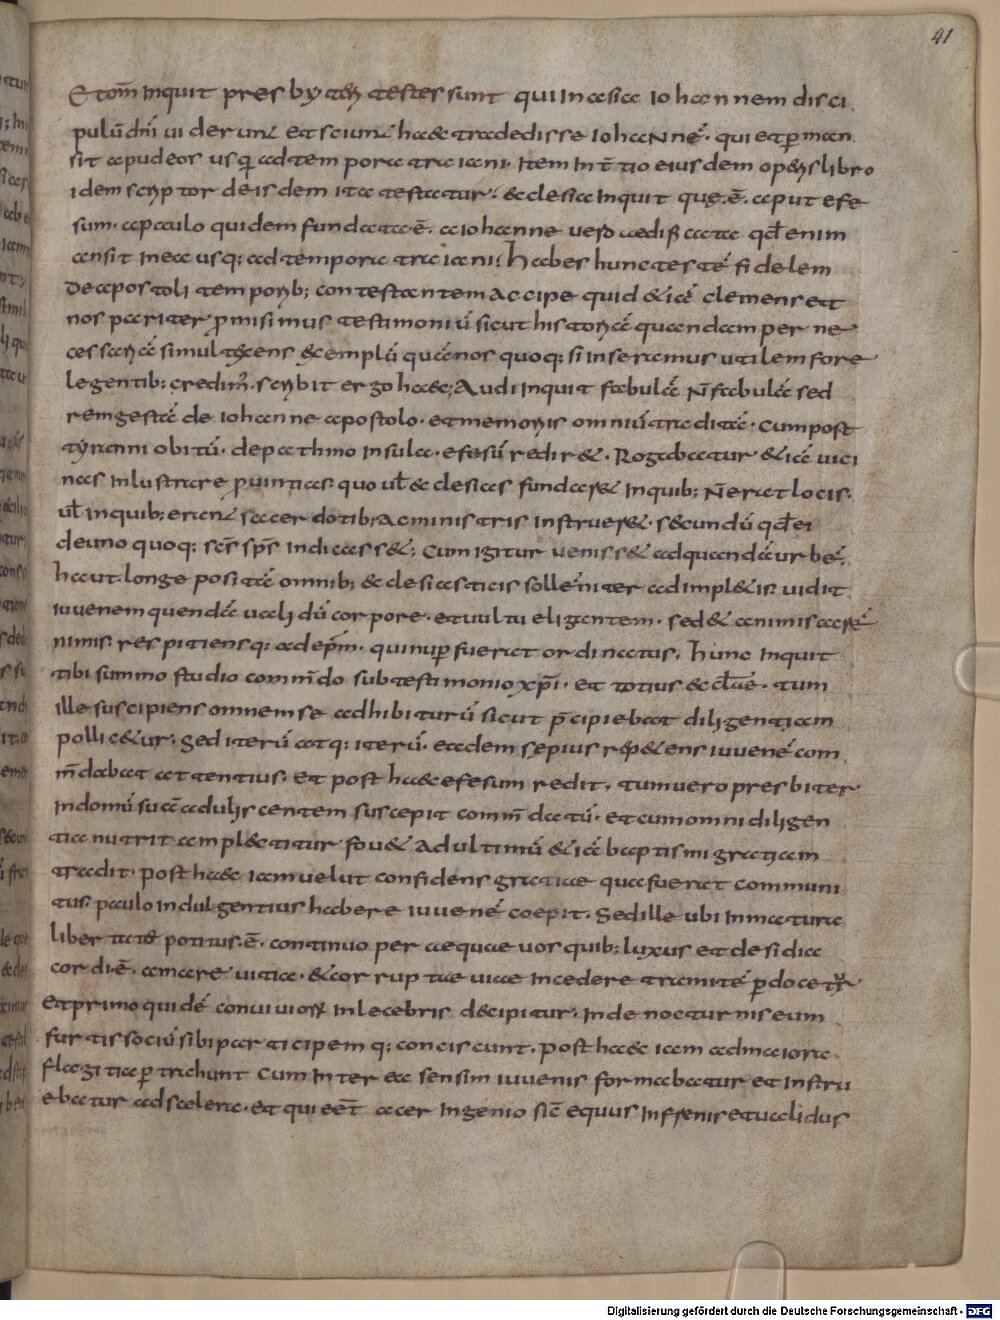 41
Et om̄ inquit presbyteri testes sunt qui in asia iohannem disci
pulū dn̄i uiderunt et sciunt haec tradedisse iohannē. qui et ꝑman
sit apud eos usq; ad tempora traiani. Item in t̄tio eiusdem operis libro
idem scriptor de isdem ita testatur. & clesia inquit quę .ē. aput efe
sum. a paulo quidem fundata .ē. a iohanne uero aedificata qd̄ enim
ansit in ea usq; ad tempora traiani; habes hunc testē fidelem
de apostoli temporib; contestantem Accipe quid & iā clemens et
nos pariter ꝓmisimus testimoniū sicut historiā quandam per ne
cessariā simul tacens & emplū quā nos quoq; si inseramus utilem fore
legentib; credim᷒. scribit ergo haec; Audi inquit fabulā n̄ fabulā sed
rem gestā de iohanne apostolo. et memoriis omniū traditā. Cum post
tyranni obitū. de pathmo insula. efesū redir&. Rogabatur & iā uici
nas inlustrare ꝓuintias. quo ul̄ & clesias fundar& inquib; n̄ erat locis.
ul̄ inquib; erant sacerdotib; ac ministris instruer&. secundū qd̄ ei
de uno quoq; sc̄s sp̄s indicass&; Cum igitur uenisset ad quandā urbē.
haut longe positā omnib; & clesiasticis sollēniter adimpl&is. uidit
iuuenem quendā ualidū corpore. et uultu eligantem. sed & animis acrē
nimis. respitiensq; ad ep̄m. qui nup fuerat ordinatus. hunc inquit
tibi summo studio com̄do sub testimonio xp̄i. et totius & cl̄ae. tum
ille suscipiens omnem se adhibiturū sicut p̄cipiebat diligentiam
pollic&ur. Sed iterū atq; iterū. eadem sepius rep&ens iuuenē com
m̄dabat attentius. et post haec efesum redit. tum uero presbiter
in domū suā adulescentem suscepit com̄datū. et cum omni diligen
tia nutrit ampl&titur fou& Ad ultimū & iā baptismi gratiam
tradit. post haec iam uelut confidens gratiae qua fuerat communi
tus. paulo indulgentius habere iuuenē coepit. Sed ille ubi inmatura
libertate potitus .ē. continuo per aequaeuos quib; luxus et desidia
cordi .ē. amare uitia. & corruptae uiae incedere tramitē ꝑdocetur
Et primo quidē conuiuiorum inlecebris decipitur. inde nocturnis eum
furtis sociū sibi participemq; consciscunt. post haec iam ad maiora
flagitia ꝑtrahunt Cum interea sensim iuuenis formabatur et instru
ebatur ad scelera. et qui eēt acer ingenio sic̄ equus infrenis et ualidus
Digitalisierung gefördert durch die Deutsche Forschungsgemeinschaft - DFG